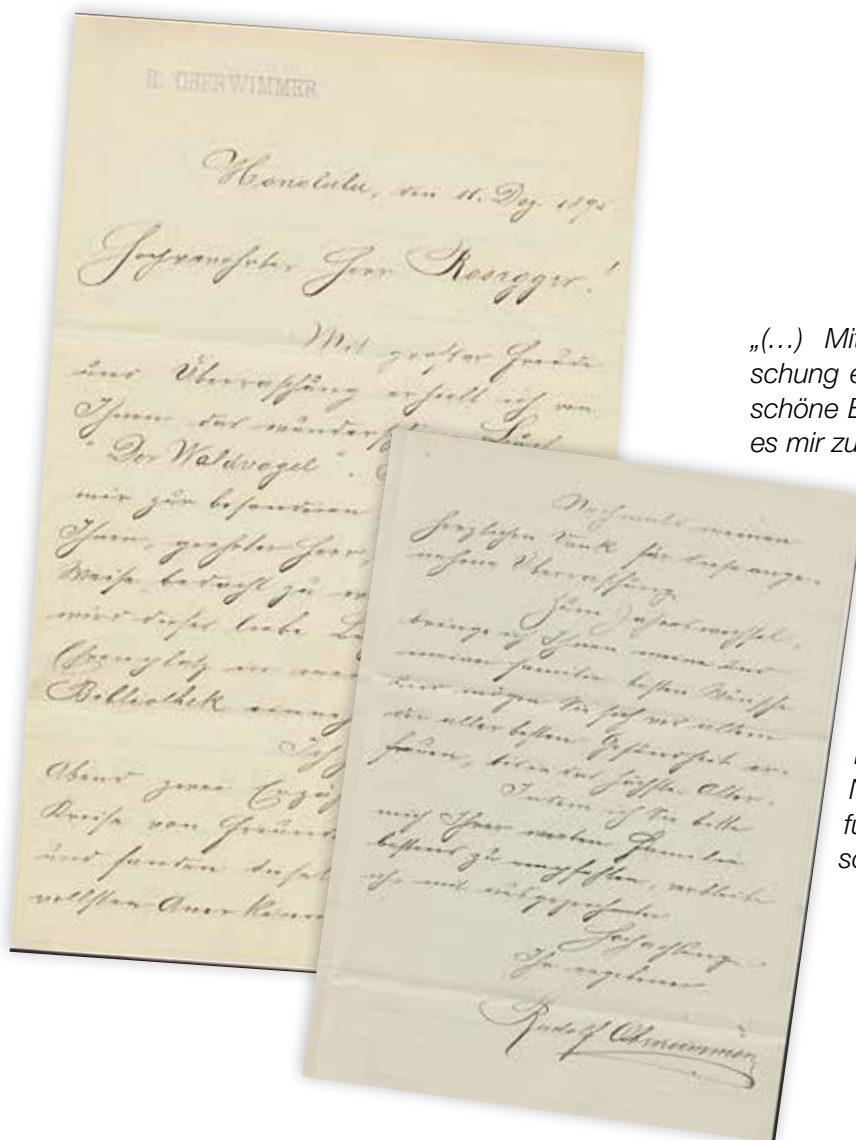 R. OBERWIMMER
Honolulu, den 11. Dez. 1895
Hochverehrter Herr Rosegger!
Mit großer Freude
und Überraschung erhielt ich von
Ihnen das wunderschöne Buch
"Der Waldvogel".
mir zur besonderen
Ihnen, geehrter Herr,
Weise bedacht zu
wird dieses liebe
Ehrenplatz in
Bibliothek
Ich
Abend zwei
Kreise von
und fanden
vollsten
Nochmals meinen
herzlichen Dank für diese ange-
nehme Überraschung.
Zum Jahreswechsel
bringe ich Ihnen meine und
meiner Familie besten Wünsche
und mögen Sie sich vor allem
der allerbesten Gesundheit er-
freuen, bis in das höchste Alter.
Indem ich Sie bitte
mich Ihrer werten Familie
bestens zu empfehlen, verbleibe
ich mit ausgezeichneter
Hochachtung
Ihr ergebener
Rudolf Oberwimmer
„(…) Mit
schung e
schöne B
es mir zu
N
fu
sc